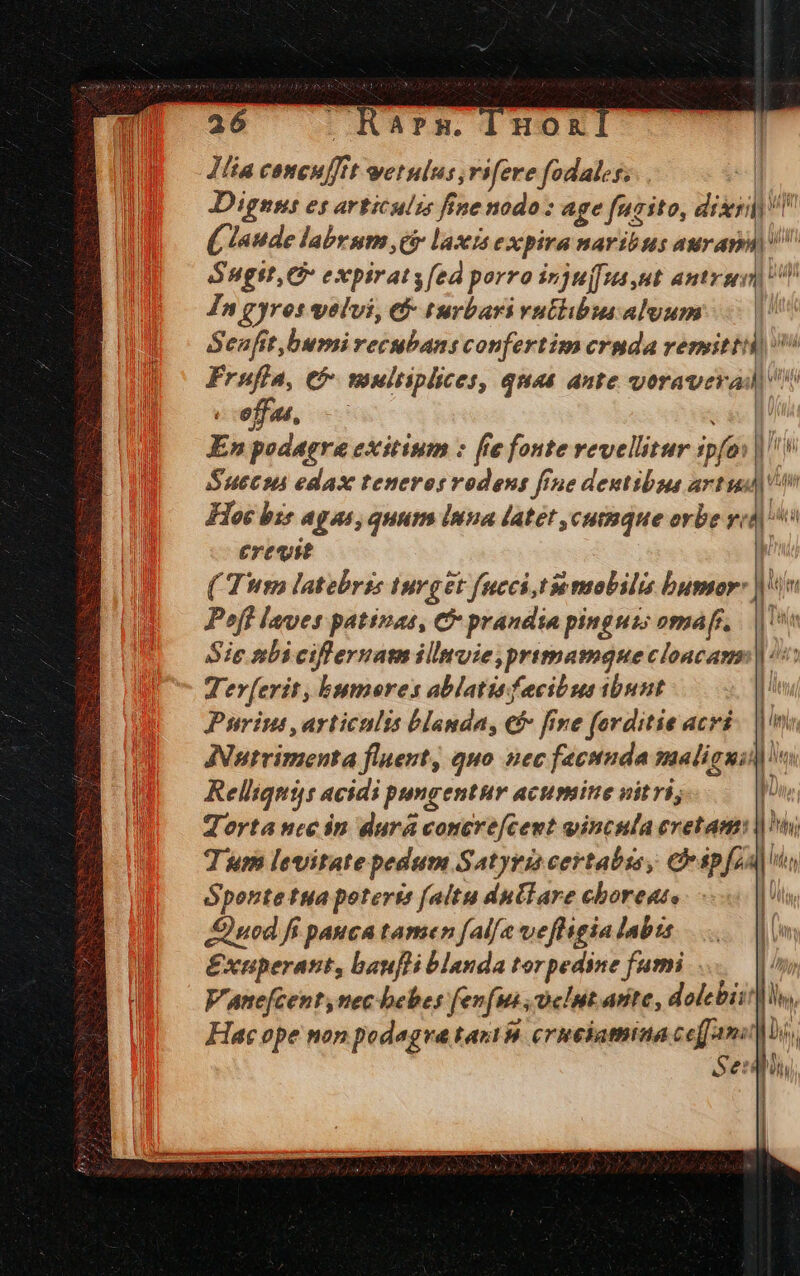 26 Raph. Thorl
Ilia concuſſit vetulus, riſere ſodales.
Dignus es articulis ſine nodo: age ſugito, dixit
Claude labrum, & laxis expira naribus auram
Sugit, & expirat; ſed porro injuſſus, ut antrum
In gyros volvi, & turbari ructibus alvum
Senſit, humi recubans confertim cruda remittit
Fruſta, & multiplices, quas ante voraverat
offas,
En podagræ exitium: ſic fonte revellitur ipſo
Succus edax teneros rodens ſine dentibus artus
Hoc bis agas, quum luna latet, cumque orbe
crevit
(Tum latebris turgēt ſucci, tū mobilis humor
Poſt laves patinas, & prandia pinguis omaſi,
Sic ubi ciſternam illuvie, primamque cloacam
Terſerit, humores ablatis fæcibus ibunt
Purius, articulis blanda, & ſine ſorditie acri
Nutrimenta fluent, quo nec fæcunda maligni
Relliquijs acidi pungentur acumine nitri,
Torta nec in durā concreſcent vincula cretam
Tum levitate pedum Satyris certabis, & ipſa
Sponte tua poteris ſaltu ductare choreas.
Quod ſi pauca tamen ſalſæ veſtigia labis
Exuperant, hauſti blanda torpedine fumi
Vaneſcent, nec hebes ſenſus, velut ante, dolebit
Hac ope non podagræ tantū cruciamina ceſſant
Sed